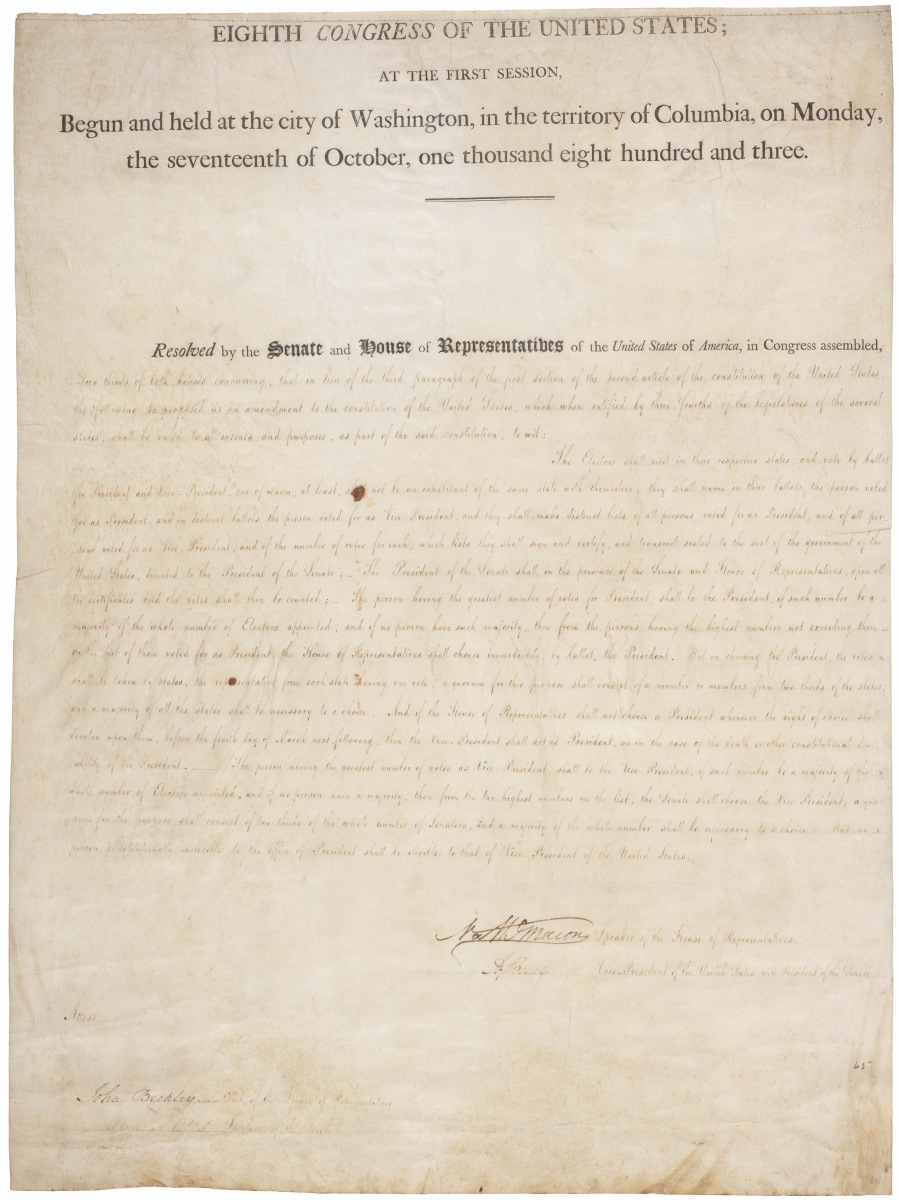 EIGHTH CONGRESS OF THE UNITED STATES;
AT THE FIRST SESSION,
Begun and held at the city of Washington, in the territory of Columbia, on Monday,
the seventeenth of October, one thousand eight hundred and three.
Resolved by the Senate and House of Representatives of the United States of America, in Congress assembled,
Two thirds of both houses concurring, that in lieu of the third paragraph of the first section of the second article of the constitution of the United States,
the following be proposed as an amendment to the constitution of the United States, which when ratified by three fourths of the legislatures of the several
states, shall be valid to all intents and purposes, as part of the said constitution, to wit:
The Electors shall meet in their respective states, and vote by ballot
for President and Vice-President, one of whom, at least, shall not be an inhabitant of the same state with themselves; they shall name in their ballots, the person voted
for as President, and in distinct ballots, the person voted for as Vice-President, and they shall make distinct lists of all persons voted for as President, and of all per-
sons voted for as Vice-President, and of the number of votes for each, which lists they shall sign and certify, and transmit sealed to the seat of the government of the
United States, directed to the President of the Senate;— The President of the Senate shall in the presence of the Senate and House of Representatives, open all
the certificates and the votes shall then be counted:— The person having the greatest number of votes for President, shall be the President, if such number be a
majority of the whole number of Electors appointed; and if no person have such majority, then from the persons having the highest numbers not exceeding three
on the list of those voted for as President, the House of Representatives shall choose immediately, by ballot, the President. But in choosing the President, the votes
shall be taken by states, the representation from each state having one vote; a quorum for this purpose shall consist of a member or members from two-thirds of the states,
and a majority of all the states shall be necessary to a choice. And if the House of Representatives shall not choose a President whenever the right of choice shall
devolve upon them, before the fourth day of March next following, then the Vice-President shall act as President, as in the case of the death or other constitutional disa-
bility of the President.— The person having the greatest number of votes as Vice President, shall be the Vice President, if such number be a majority of the
whole number of Electors appointed, and if no person have a majority, then from the two highest numbers on the list, the Senate shall choose the Vice President; a quo-
rum for the purpose shall consist of two-thirds of the whole number of Senators, and a majority of the whole number shall be necessary to a choice. But no
person constitutionally ineligible to the office of President shall be eligible to that of Vice-President of the United States.
Nathl Macon Speaker of the House of Representatives.
A. Burr Vice-President of the United States, and President of the Senate.
Attest
John Beckley Clerk of the House of Representatives
65